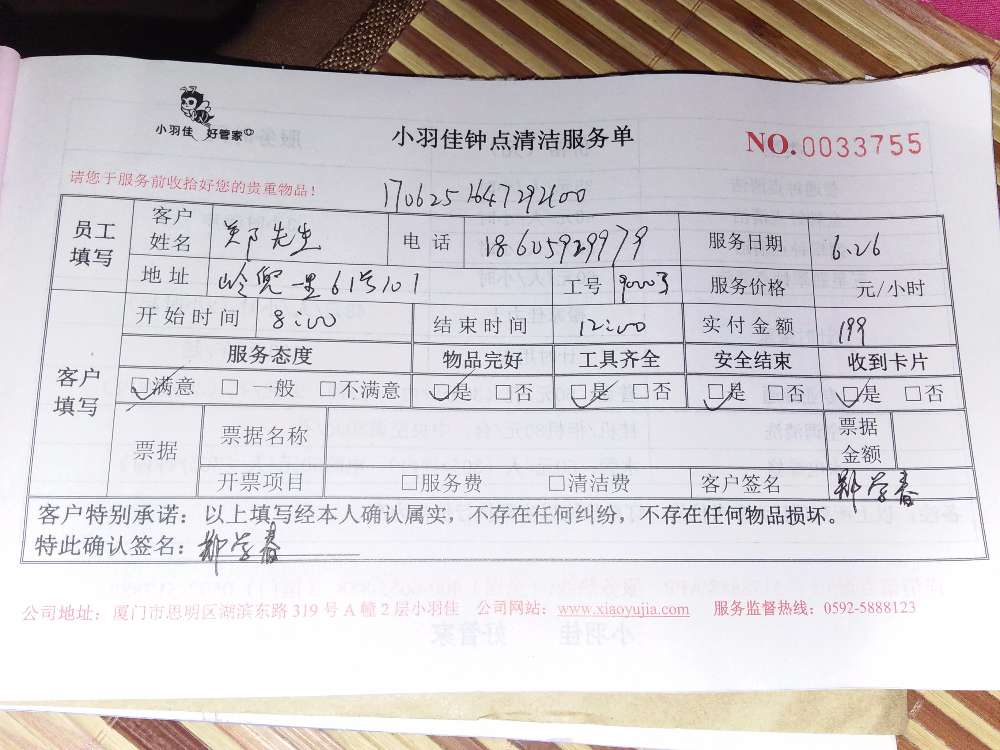 小羽佳 好管家
小羽佳钟点清洁服务单
NO.0033755
请您于服务前收拾好您的贵重物品!
员工填写 客户姓名 郑先生 电话 18605929979 服务日期 6.26
地址 岭兜一里61号101 工号 服务价格 元/小时
客户填写 开始时间 8:00 结束时间 12:00 实付金额 199
服务态度 物品完好 工具齐全 安全结束 收到卡片
☑满意 □一般 □不满意 ☑是 □否 ☑是 □否 ☑是 □否 ☑是 □否
票据 票据名称 票据金额
开票项目 □服务费 □清洁费 客户签名 郑学春
客户特别承诺:以上填写经本人确认属实,不存在任何纠纷,不存在任何物品损坏。
特此确认签名:郑学春
公司地址:厦门市思明区湖滨东路319号A幢2层小羽佳 公司网站:www.xiaoyujia.com 服务监督热线:0592-5888123